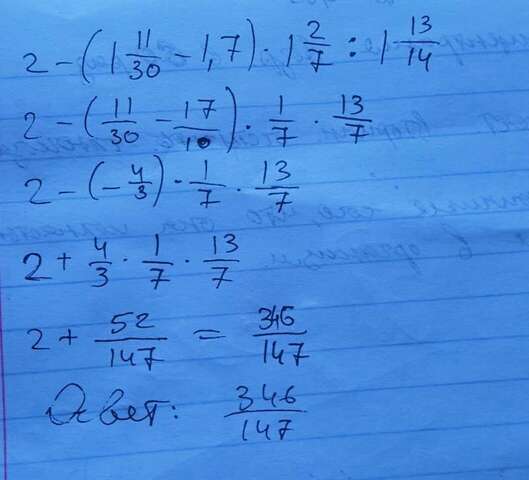 2 - (1 11/30 - 1,7) · 1 2/7 : 1 13/14
2 - (11/30 - 17/10) · 1/7 · 13/7
2 - (- 4/3) · 1/7 · 13/7
2 + 4/3 · 1/7 · 13/7
2 + 52/147 = 346/147
Ответ: 346/147